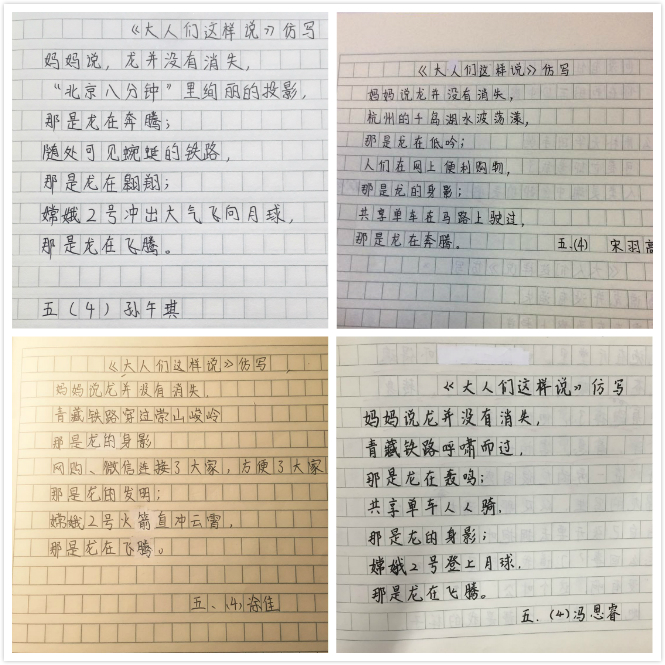 《大人们这样说》仿写
妈妈说，龙并没有消失，
“北京八分钟”里绚丽的投影，
那是龙在奔腾；
随处可见蜿蜒的铁路，
那是龙在翱翔；
嫦娥2号冲出大气飞向月球，
那是龙在飞腾。
五（4）孙午琪
《大人们这样说》仿写
妈妈说龙并没有消失，
杭州的千岛湖水波荡漾，
那是龙在低吟；
人们在网上便利购物，
那是龙的身影；
共享单车在马路上驶过，
那是龙在奔腾。
五.(4) 宋羽高
《大人们这样说》仿写
妈妈说龙并没有消失，
青藏铁路穿过崇山峻岭
那是龙的身影
网购、微信连接了大家，方便了大家
那是龙的发明；
嫦娥2号火箭直冲云霄，
那是龙在飞腾。
五、(4)徐佳
《大人们这样说》仿写
妈妈说龙并没有消失，
青藏铁路呼啸而过，
那是龙在轰鸣；
共享单车人人骑，
那是龙的身影；
嫦娥2号登上月球，
那是龙在飞腾。
五.(4)冯思睿